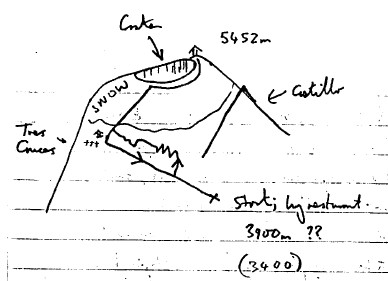 Crater
5452m
SNOW
Castillo
Tres
Cruces
+++
Start, by restaurant
3900m ??
(3400)